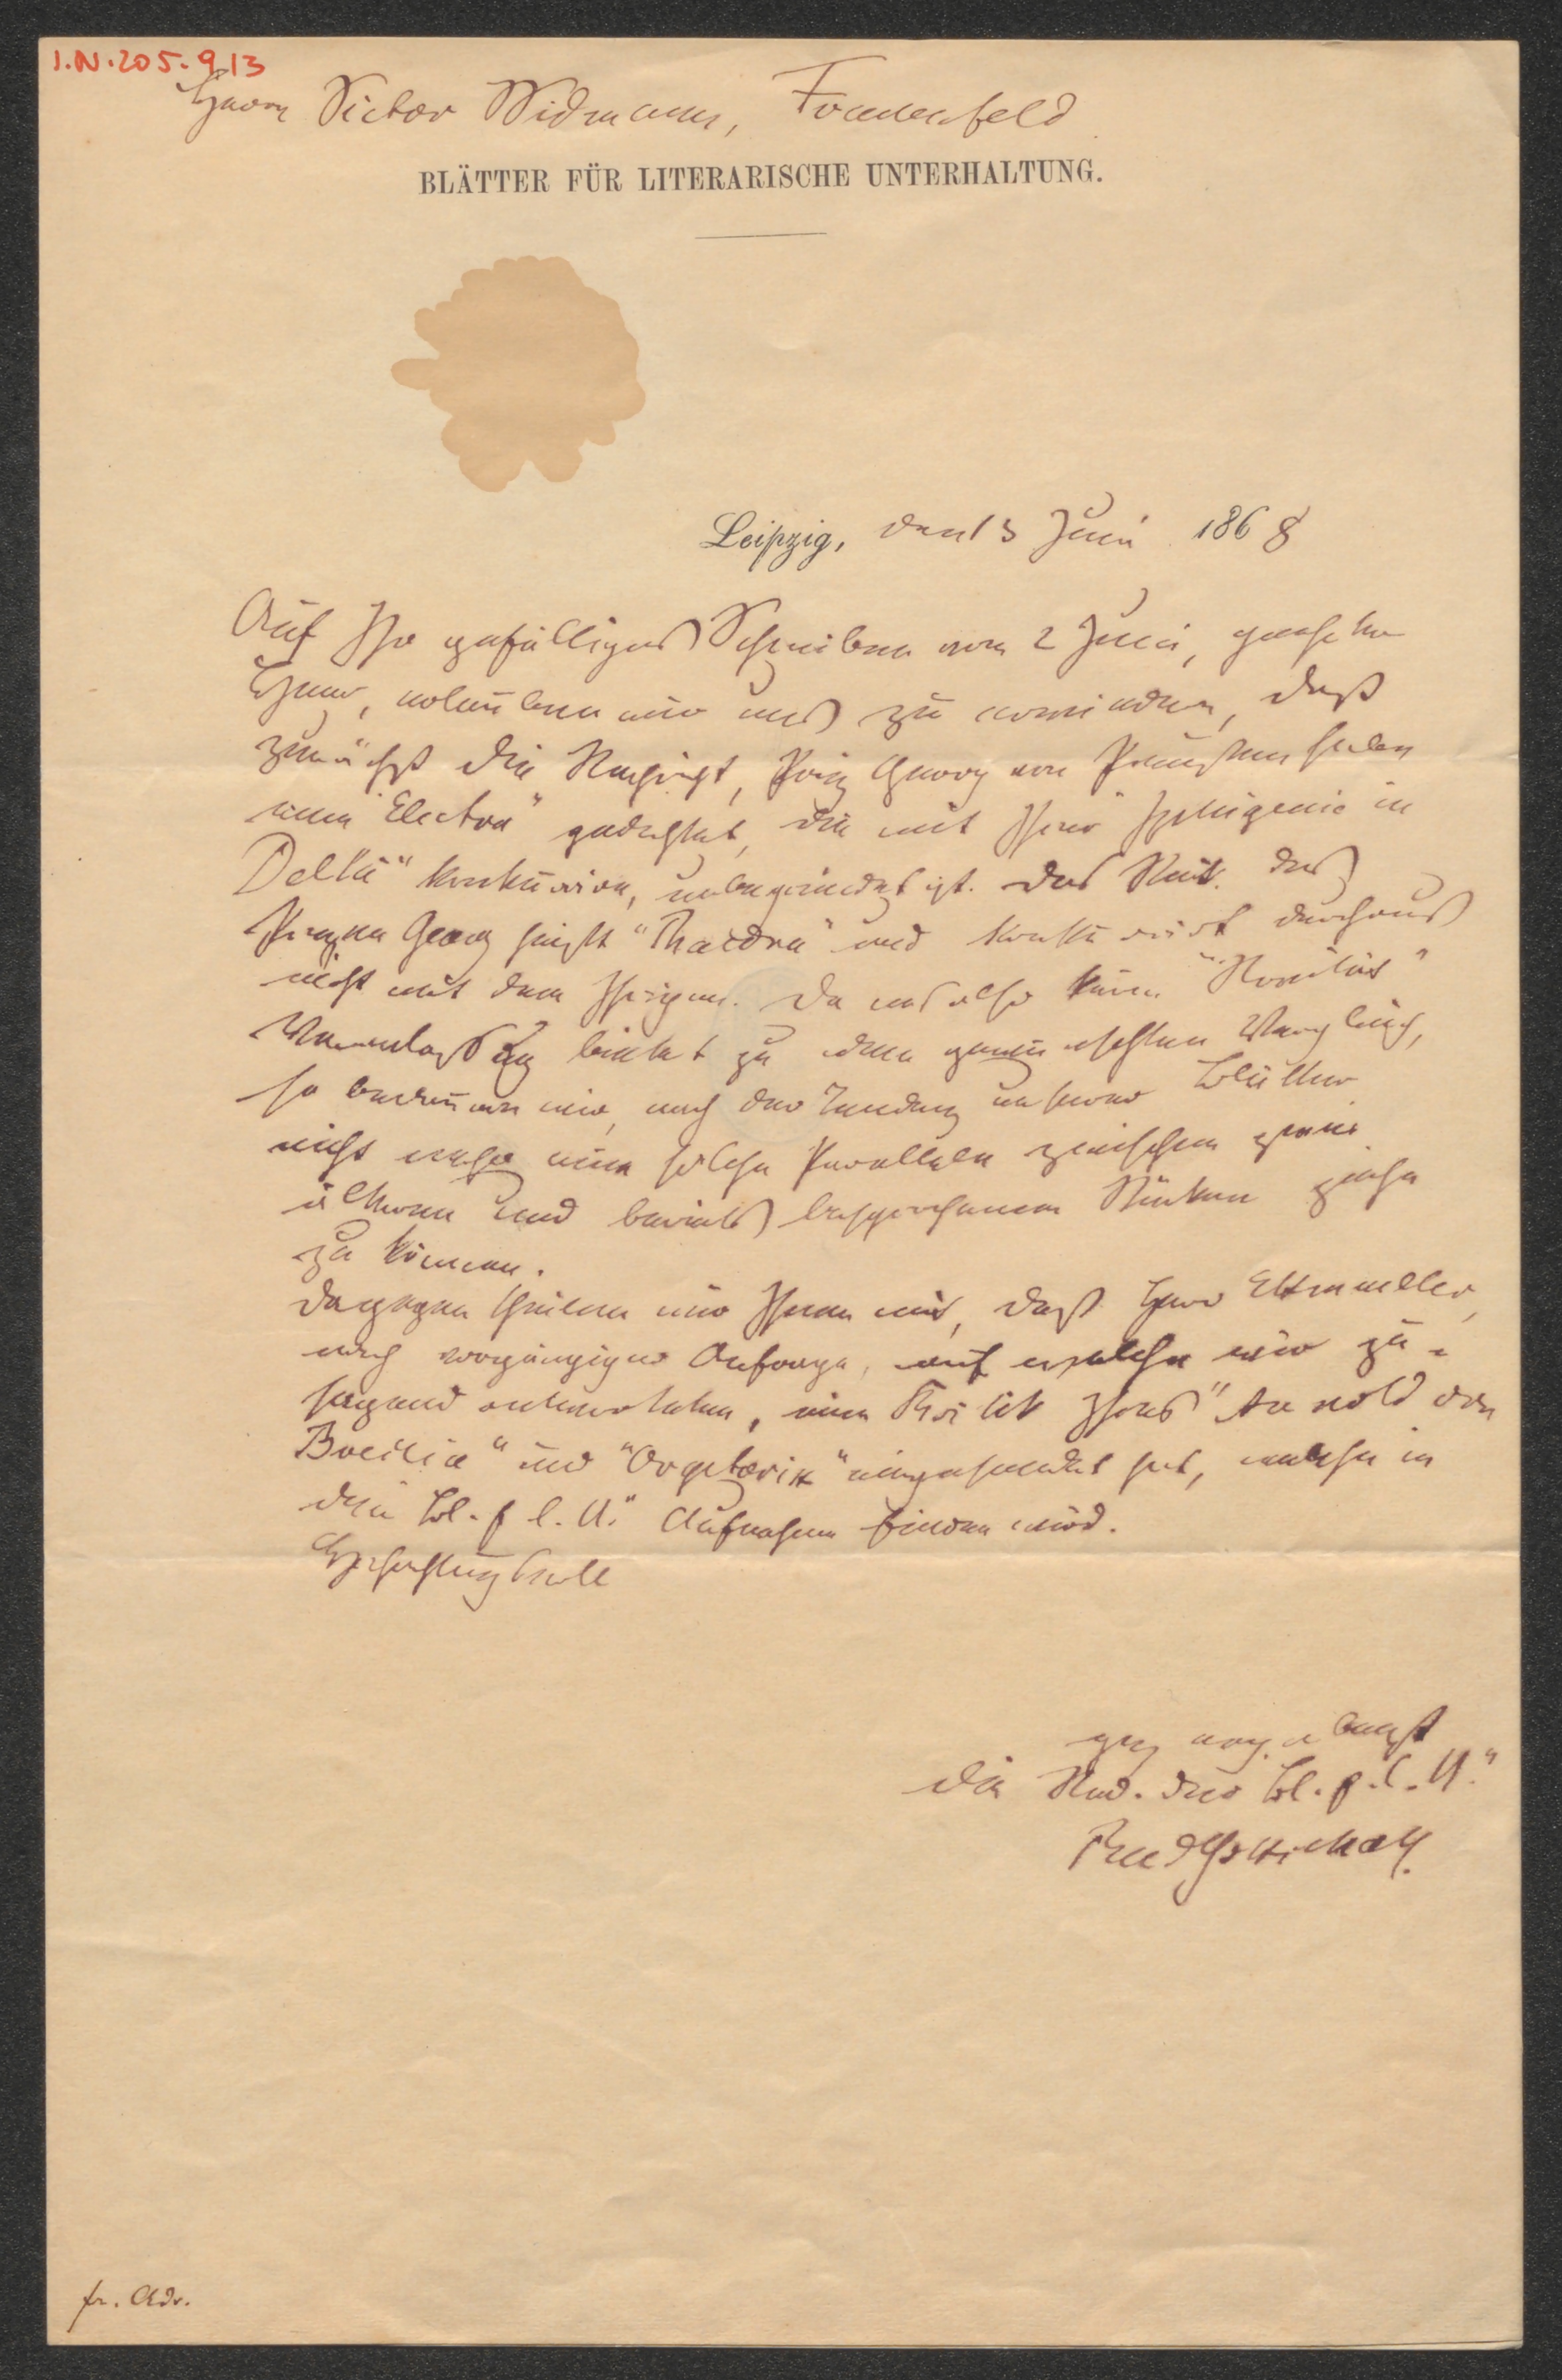 I.N. 205.913
Herrn Victor Widmann, Frauenfeld
BLÄTTER FÜR LITERARISCHE UNTERHALTUNG.
Leipzig, den 13 Juni 1868
Auf Ihr gefälliges Schreiben vom 2 Juni, geehrter
Herr, erlauben wir uns zu erwiedern, daß
zunächst die Nachricht, Prinz Georg von Preußen habe
eine "Electra" gedichtet, die mit Ihrer "Iphigenie in
Delfi" konkurrire, unbegründet ist. Das Stück des
Prinzen Georg heißt "Phaedra" und konkurrirt durchaus
nicht mit dem Ihrigen. Da uns also keine "Novität"
Veranlassung bietet zu dem gewünschten Vergleich,
so bedauern wir, nach der Tendenz unserer Blätter
nicht eine solche Parallele zwischen zwei
älteren und bereits besprochenen Stücken ziehn
zu können.
Dagegen theilen wir Ihnen mit, daß Herr Ettmüller,
nach vorgängiger Anfrage, auf welche wir zu-
sagend antworteten, eine Kritik Ihres "Arnold von
Brescia" und "Orgetorix" eingesendet hat, welche in
den Bl. f l. U." Aufnahme finden wird.
Hochachtungsvoll
ganz ergebenst
die Red. der Bl. f. l. U."
Rud Gottschall.
fr. Adr.